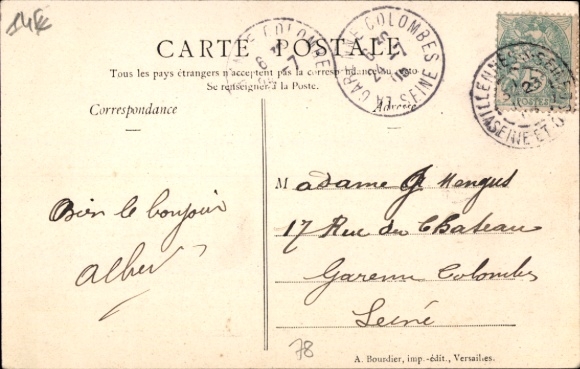 14 fc
CARTE POSTALE
Tous les pays étrangers n'acceptent pas la correspondance au recto
Se renseigner à la Poste.
Correspondance
Adresse
LA GARENNE COLOMBES
SEINE
VILLENNES-S-SEINE
SEINE ET O.
POSTES
Bien le bonjour
Albert
Madame G Mengus
17 Rue du Chateau
Garenne Colombes
Seine
78
A. Bourdier, imp.-édit., Versailles.